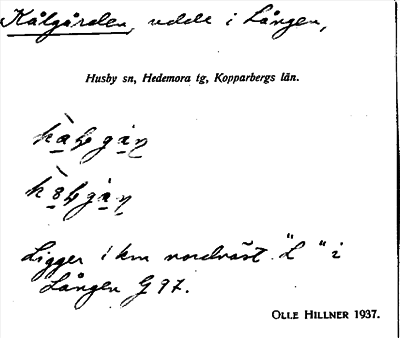 Kålgården, udde i Lången,
Husby sn, Hedemora tg, Kopparbergs län.
Ligger 1 km nordväst "L " i
Lången G 97.
OLLE HILLNER 1937.